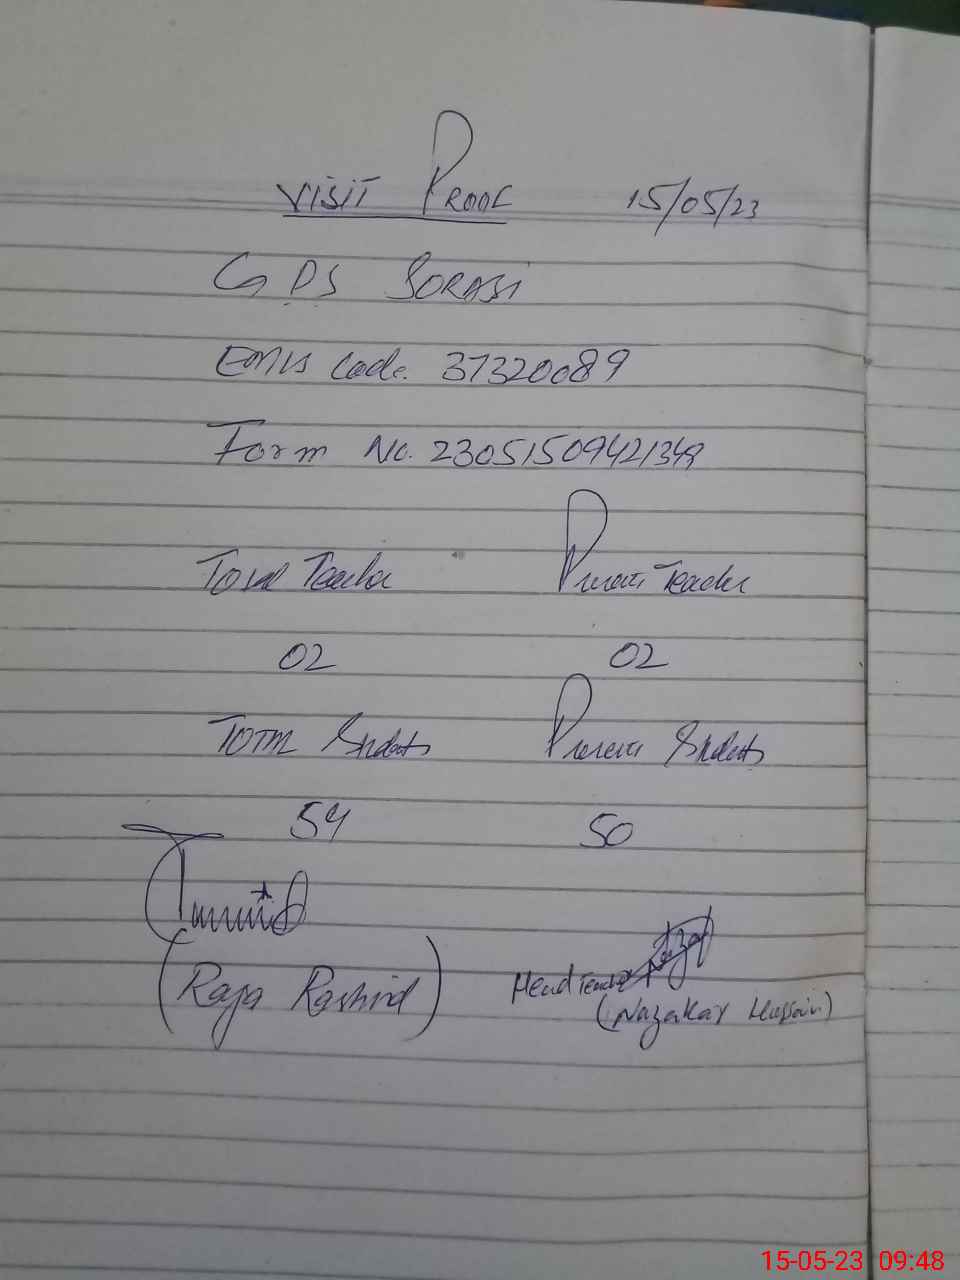 VISIT PROOF 15/05/23
GPS SORASI
EMIS Code. 37320089
Form No. 23051509421349
Total Teacher Present Teacher
02 02
Total Students Present Students
54 50
(Raja Rashid)
Head Teacher
(Nazakat Hussain)
15-05-23 09:48